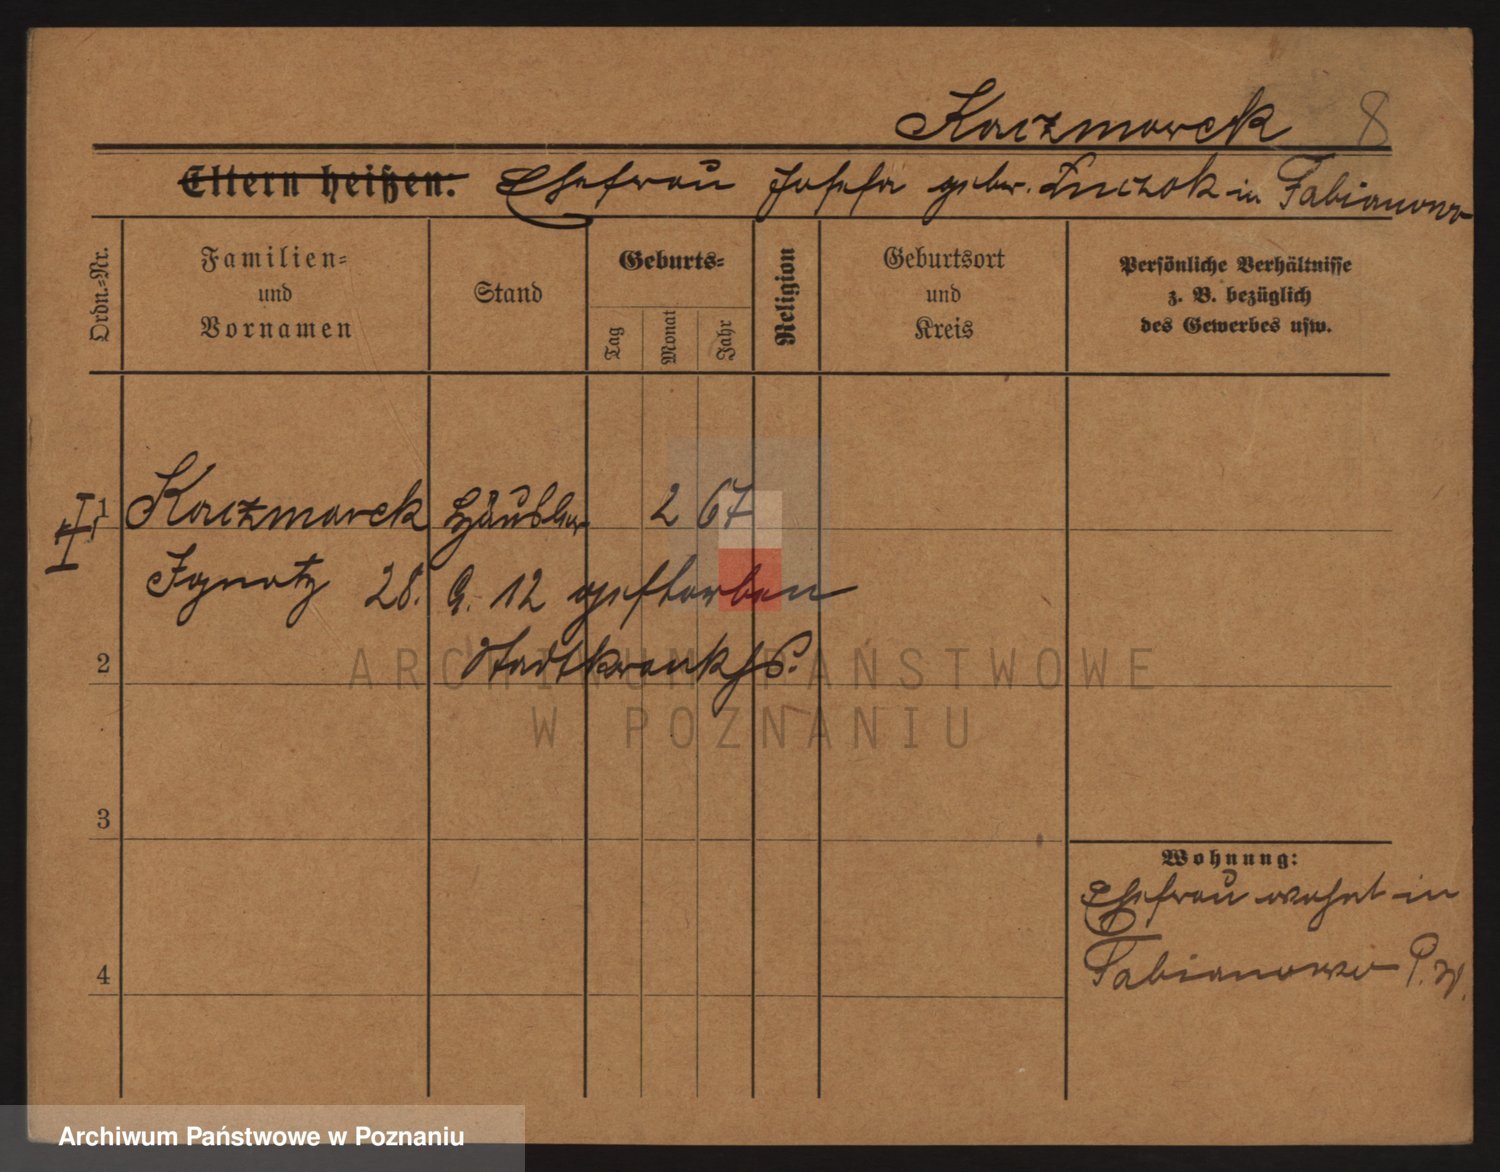 Kaczmarek 8
Eltern heißen: Ehefrau Josefa gebor. in Fabianowo
Ordn.-Nr.
Familien-
und
Vornamen
Stand
Geburts-
Tag
Monat
Jahr
Religion
Geburtsort
und
Kreis
Persönliche Verhältnisse
z. B. bezüglich
des Gewerbes usw.
1 Kaczmarek Häusler 2 67
Ignatz 28. 9. 12 gestorben
2 Stadtkrankhs.
ARCHIWUM PAŃSTWOWE
W POZNANIU
3
Wohnung:
Ehefrau wohnt in
4 Fabianowo P. W.
Archiwum Państwowe w Poznaniu